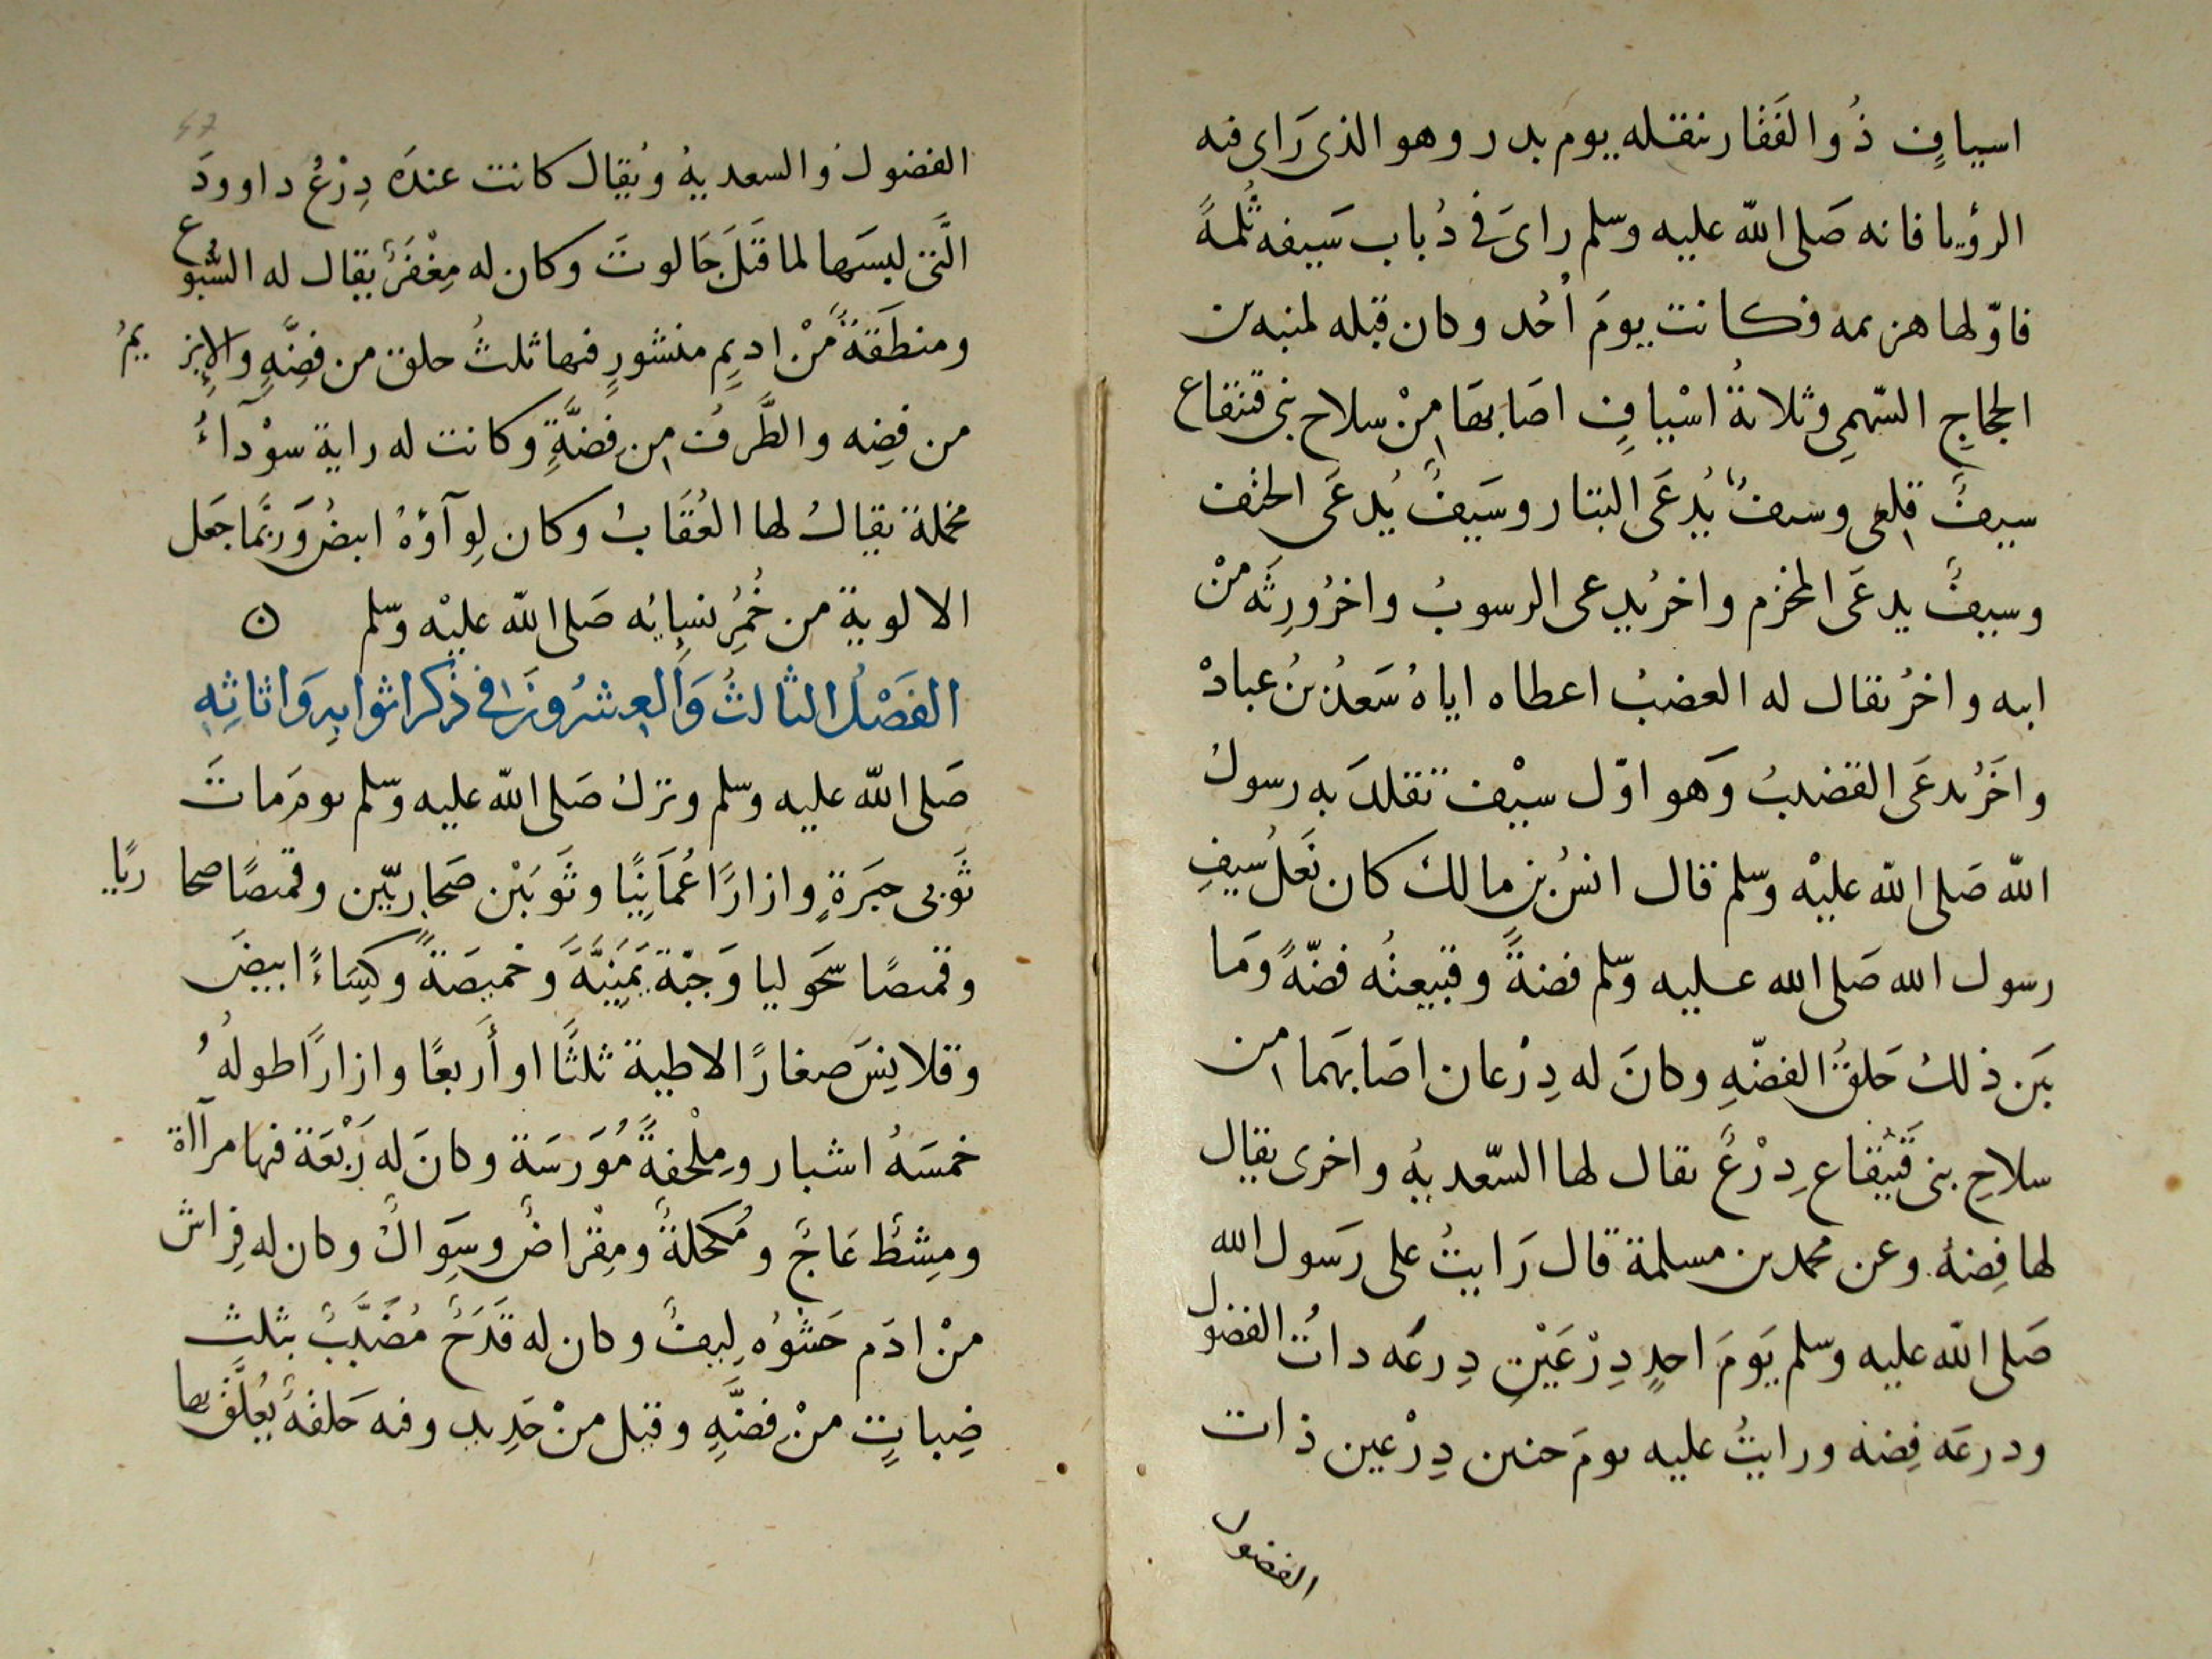 اسيافٍ ذُوالفَقَار تنقله يوم بدر وهو الذى رَاى فيه
الرؤيا فانه صَلى الله عليه وسلم راىَ فى ذُباب سَيفه ثُلمةً
فاوّلها هزيمه فكانت يومَ أُحُد وكان قبله لمنبه بن
الحجاجِ السّهمىِ وثلاثةُ اسْيافٍ اصَابهَا مِنْ سلاح بنى قينقاع
سيفٌ قلعى وسيفٌ يُدعَى البتار وسَيفٌ يُدعَى الحتف
وسيفٌ يدعَى المخزم واخرُ يدعى الرسوبُ واخرُ ورِثَه منْ
ابيه واخرُ يقال له العضبُ اعطاه اياهُ سَعدُ بنُ عبادْ
واخَرُ يدعَى القضيبُ وَهو اوّل سيْف تقلدَ به رسولُ
الله صَلى الله عليْه وسلم قال انسُ بن مالك كان نَعَلُ سَيفِ
رسول الله صَلى الله عليه وسلم فضةً وقبيعتُه فضّةً وَمَا
بَين ذلك حَلقُ الفضّهِ وكانَ له دِرْعان اصَابهَما من
سلاحِ بنى قَينُقاع دِرْعٌ يقال لها السّعديهُ واخرى يقال
لها فِضهُ وعن محمد بن مسلمة قال رَايتُ على رَسول الله
صَلى الله عليه وسلم يَومَ احدٍ دِرْعَيْنِ دِرعَه ذاتُ الفضول
ودرعَه فِضه ورايتُ عليه يومَ حنين دِرْعين ذات
الفضول
الفضول والسعديهُ ويُقال كانت عندَه دِرْعُ داوودَ
الَّتى لبسَها لما قَتَلَ جَالوتَ وكان له مِغْفَرٌ يقال له السُّبُوع
ومنطَقةٌ مْن اديِمٍ منشورٍ فيها ثلثُ حلق من فِضّةٍ والإبزيمُ
من فِضه والطَّرفُ من فِضَّةٍ وكانت له راية سوْدآءُ
مخملة يقالُ لها العُقَابُ وكان لِوآؤهُ ابيضُ وَربَّما جَعَل
الالوية من خُمُرِ نسايُه صَلى الله عليْه وسلم ن
الفَصْلُ الثالثُ وَالعِشرُونَ فى ذِكر اثوابِه وَاثاثِهِ
صَلى الله عليه وسلم وترك صَلى الله عليه وسلم يومَ مَاتَ
ثَوبى حِبَرَةٍ وازارًا عُمَانِيًا وثَوبَيْن صَحَاريّين وقميصًا صحاريًا
وقميصًا سَحَوليا وَجبّة يَمَنِيَّةَ وخميصَةً وكِسَاءً ابيضَ
وقلانِسَ صغارًا لاطية ثلثًا او أربعًا وازارًا طولهُ
خمسَهُ اشبار ومِلْحفةً مُوَرسَة وكانَ له رَبْعَة فيها مرآاة
ومِشطُ عَاجٌ ومُكحَلةٌ ومِقْراضٌ وسِوَاكٌ وكان له فِراش
منْ ادَم حَشْوُه لِيفٌ وكان له قَدَحٌ مُضَبَّبٌ بثلث
ضِباتٍ منْ فِضَّةٍ وقيل منْ حَدِيد وفيه حَلقهٌ يُعَلَّقُ بها